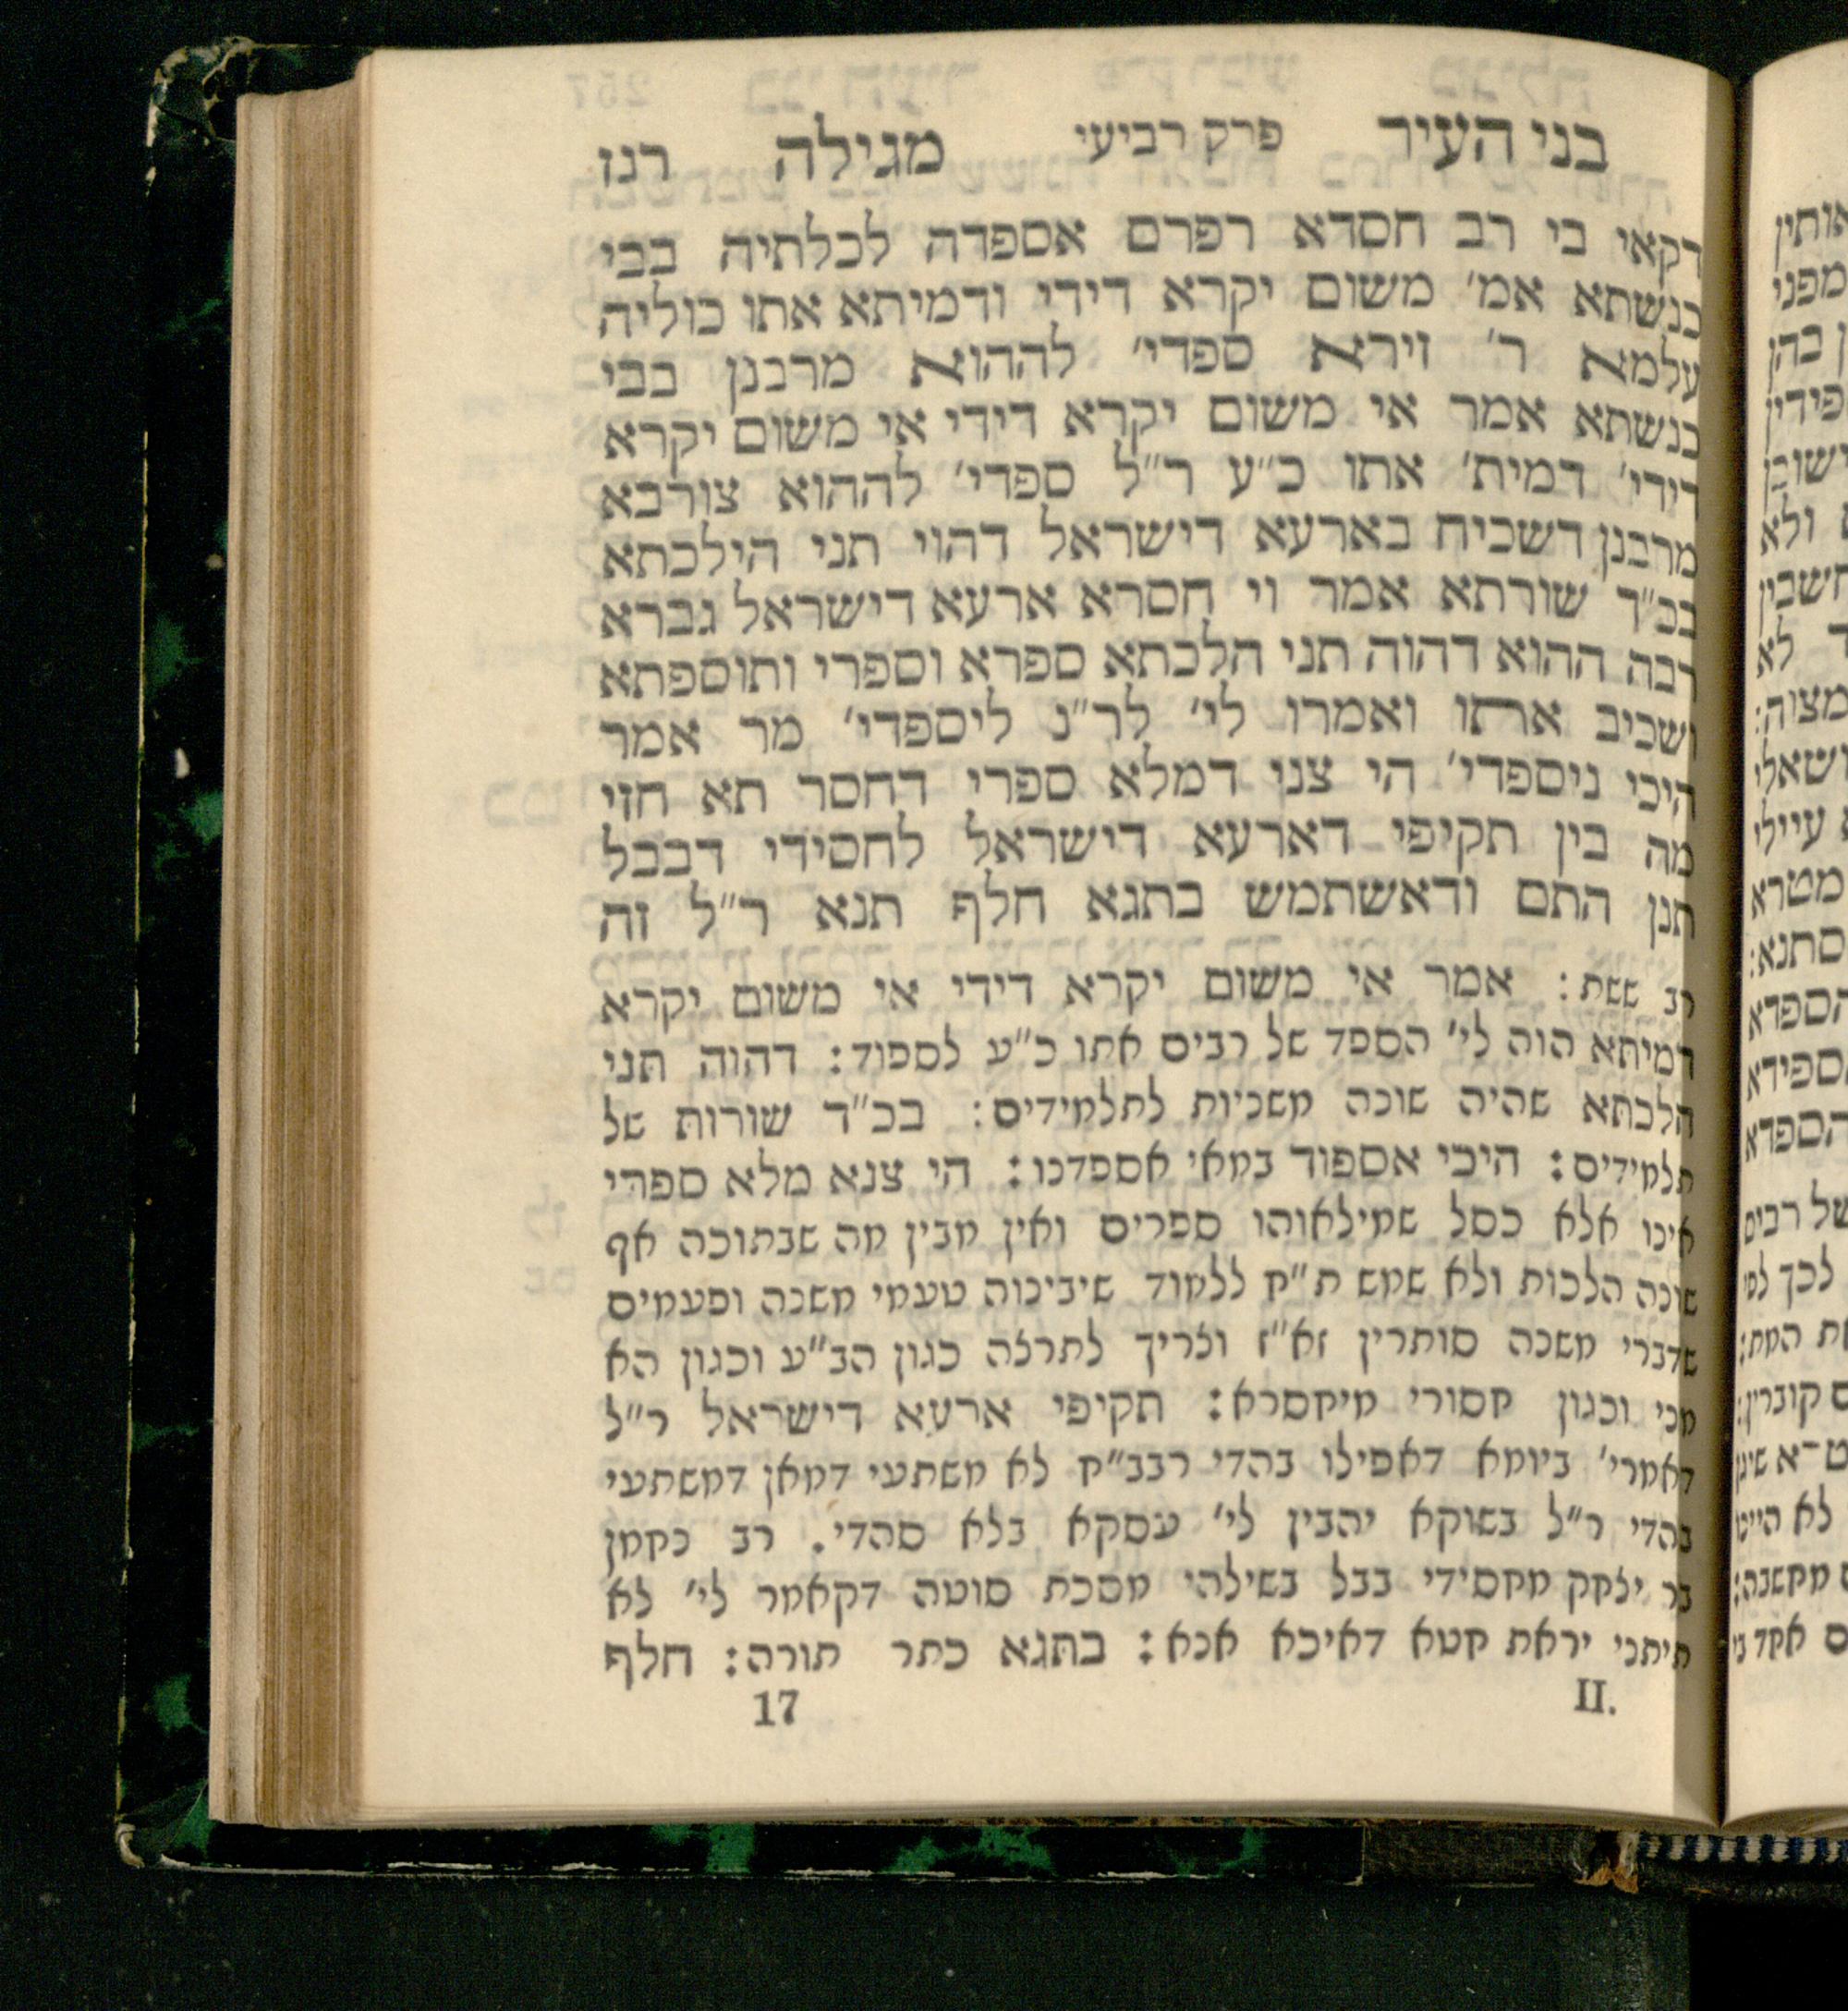 בני העיר פרק רביעי מגילה רנז
דקאי בי רב חסדא רפרם אספדה לכלתיה בבי
כנשתא אמ׳ משום יקרא דידי ודמיתא אתו כוליה
עלמא ר׳ זירא ספדי׳ לההוא מרבנן בבי
כנשתא אמר אי משום יקרא דידי אי משום יקרא
דידי׳ דמית׳ אתו כ״ע ר״ל ספדי׳ לההוא צורבא
מרבנן דשכיח בארעא דישראל דהוי תני הילכתא
בכ״ד שורתא אמר וי חסרא ארעא דישראל גברא
רבה ההוא דהוה תני הלכתא ספרא וספרי ותוספתא
ושכיב אתו ואמרו לי׳ לר״נ ליספדי׳ מר אמר
היכי ניספדי׳ הי צני דמלא ספרי דחסר תא חזי
מה בין תקיפי דארעא דישראל לחסידי דבבל
תנן התם ודאשתמש בתגא חלף תנא ר״ל זה
רב ששת: אמר אי משום יקרא דידי אי משום יקרא
דמיתא הוה לי׳ הספד של רבים אתו כ״ע לספוד: דהוה תני
הלכתא שהיה שונה משניות לתלמידים: בכ״ד שורות של
תלמידים: היכי אספוד במאי אספדנו: הי צנא מלא ספרי
אינו אלא כסל שמילאוהו ספרים ואין מבין מה שבתוכה אף
שונה הלכות ולא שמש ת״ח ללמוד שיבינוה טעמי משנה ופעמים
שדברי משנה סותרין זא״ז וצריך לתרצה כגון הב״ע וכגון הא
מני וכגון חסורי מיחסרא: תקיפי ארעא דישראל ר״ל
דאמרי׳ ביומא דאפילו בהדי רבב״ח לא משתעי דמאן דמשתעי
בהדי ר״ל בשוקא יהבין לי׳ עסקא בלא סהדי. רב נחמן
בר יצחק מחסידי בבל בשילהי מסכת סוטה דקאמר לי׳ לא
תיתני יראת חטא דאיכא אנא: בתגא כתר תורה: חלף
II. 17